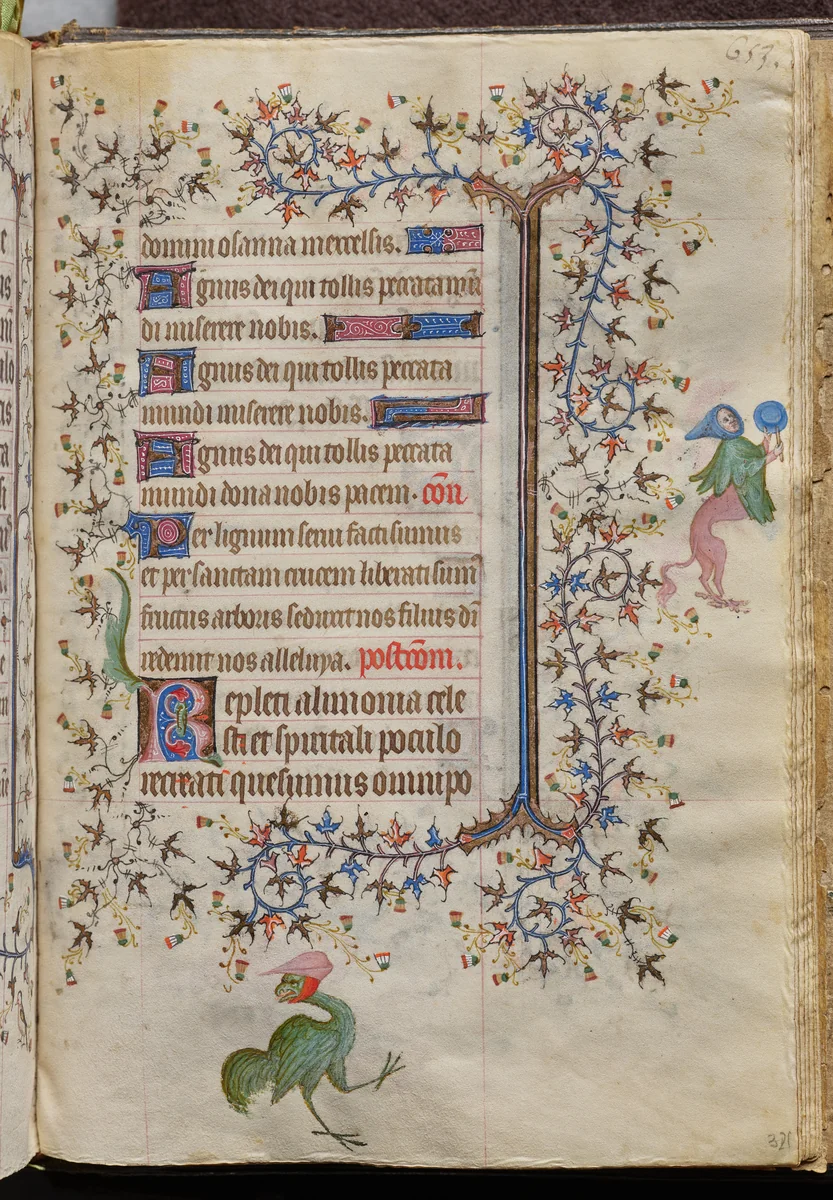 653.
domini osanna inexcelsis.
Agnus dei qui tollis peccata mū
di miserere nobis.
Agnus dei qui tollis peccata
mundi miserere nobis.
Agnus dei qui tollis peccata
mundi dona nobis pacem. cōn
Per lignum serui facti sumus
et per sanctam crucem liberati sumꝰ
fructus arboris seduxit nos filius dī
redemit nos alleluya. postcōm.
Repleti alimonia cele
sti et spiritali poculo
recreati quesumus omnipo
321